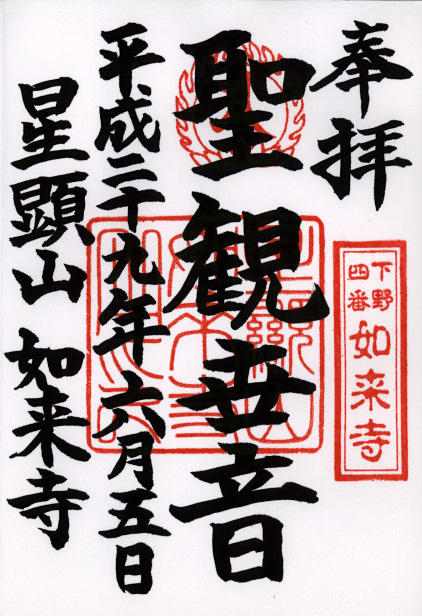 奉拝
下野
四番
如来寺
聖観世音
平成二十九年六月五日
星顕山 如来寺